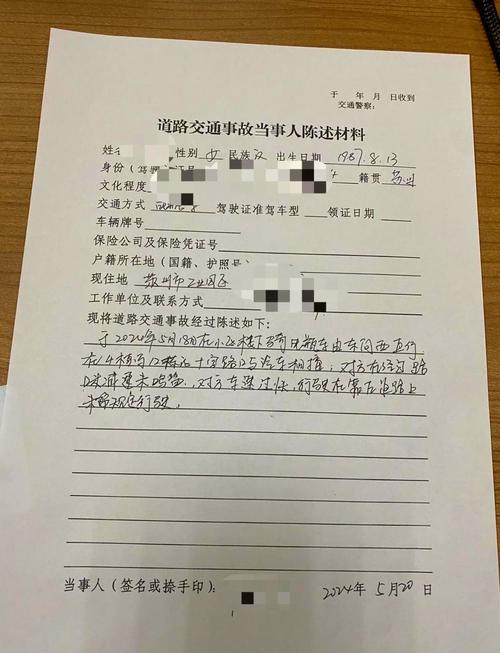 于 年 月 日收到
交通警察:
道路交通事故当事人陈述材料
姓名 性别 女 民族 汉 出生日期 1987.8.13
身份(驾驶)证号 籍贯 苏州
文化程度
交通方式 驾驶证准驾车型 领证日期
车辆牌号
保险公司及保险凭证号
户籍所在地(国籍、护照号
现住地 苏州市工业园区
工作单位及联系方式
现将道路交通事故经过陈述如下:
于2024年5月18日在小区楼下骑电瓶车由东向西直行
在14栋与12栋的十字路口与汽车相撞,对方在经过路
口未减速未鸣笛,对方车速过快,行驶在靠左道路上
未按规定行驶。
当事人(签名或捺手印):
2024年 5月20日
1